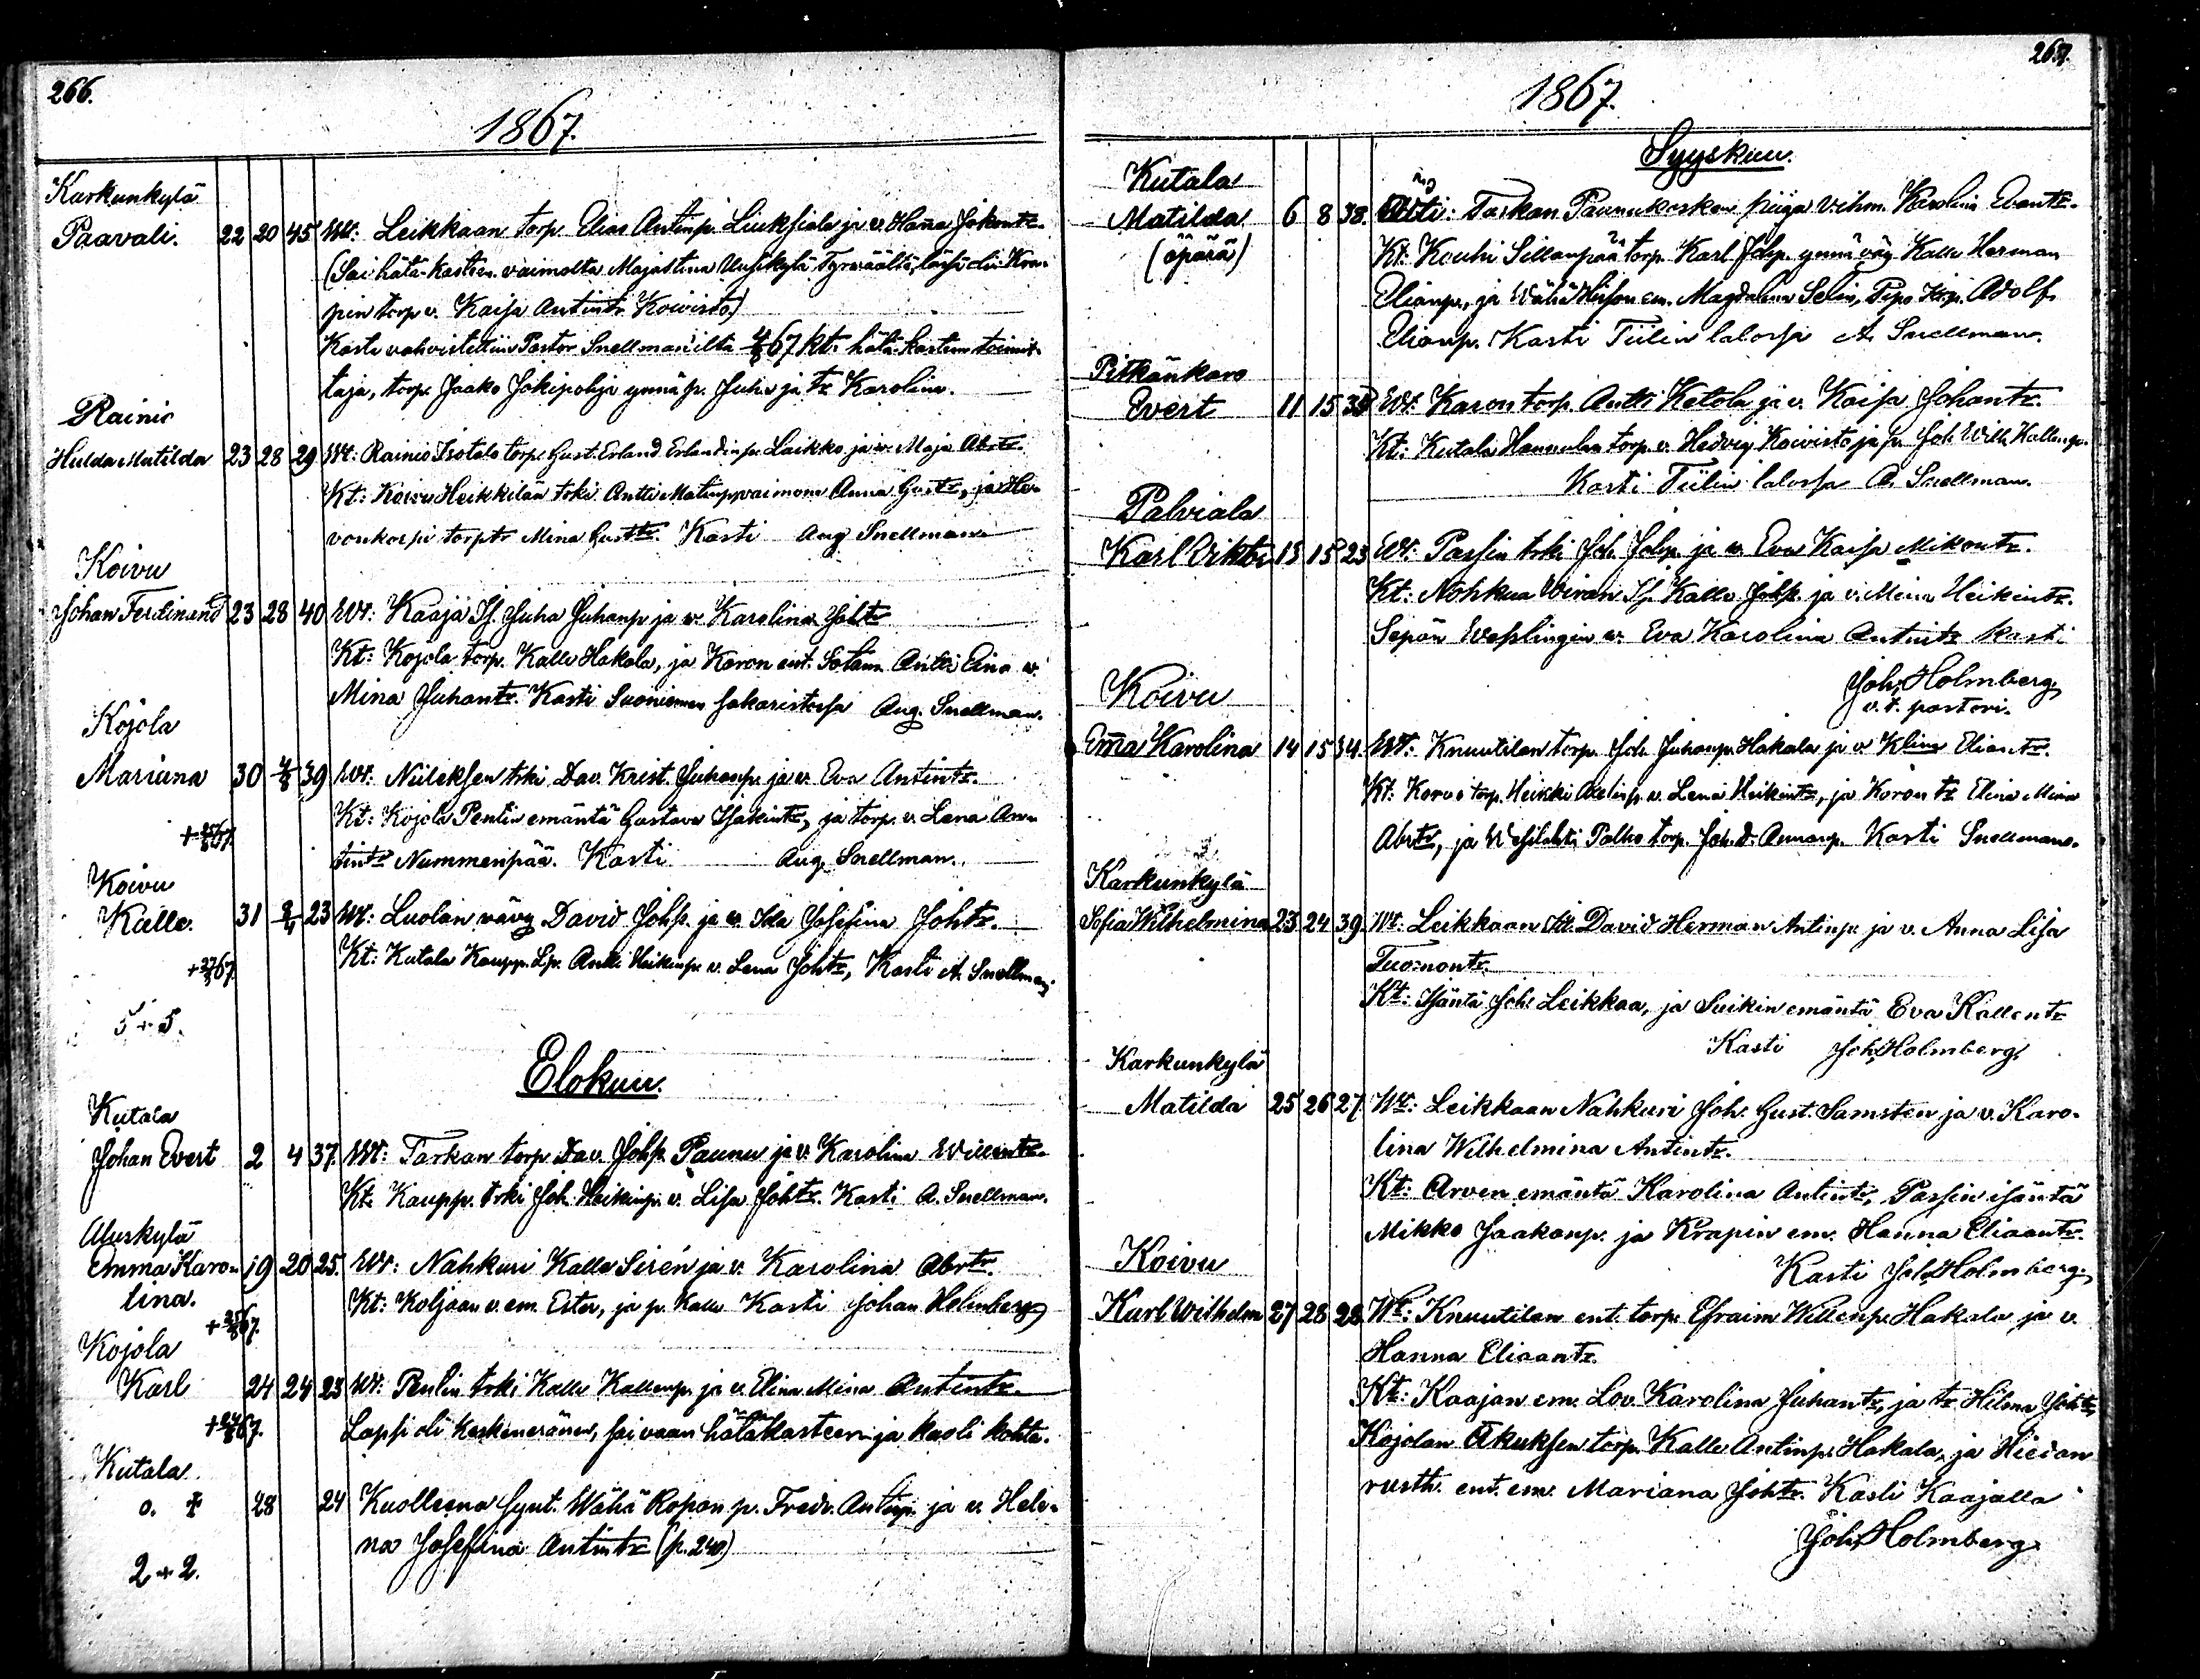 266.
1867.
Karkunkylä
Paavali. 22 20 45 Wt: Leikkaan torp. Elias Antinp. Liuksiala ja v. Hana Jakontr.
(Sai hätä-kasteen vaimolta Majastina Uusikylä Tyrväältä, läsnä oli Kra-
pin torp. v. Kaisa Antintr Koivisto)
Kaste vahvistettiin Pastor Snellman'ilta 4/8 67 kt: hätä-kasteen toimit-
taja, torp. Jaako Jokipohja ynnä p. Juha ja tr Karolina.
Rainio
Hulda Matilda 23 28 29 Wt: Rainio Isotalo torp. Gust. Erland Erlandinp. Laikko ja v. Maja Abrtr.
Kt: Koivu Heikkilän trki Antti Matinp vaimonsa Anna Gusttr, ja Her-
vonkorpi torp tr Mina Gusttr. Kasti Aug Snellman
Koivu
Johan Ferdinand 23 28 40 Wt: Kaaja If. Juha Juhanp ja v. Karolina Johtr
Kt: Kojola torp. Kalle Hakala, ja Karon ent. Sotam. Antti Eina v.
Mina Juhantr. Kasti Suoniemen sakaristossa Aug. Snellman.
Kojola
Mariana 30 4/8 39 Wt. Niileksen trki Dav. Krist. Juhanp. ja v. Eva Antintr.
Kt: Kojola Pentin emäntä Gustava Isakintr, ja torp. v. Lena An-
tintr Nummenpää. Kasti Aug. Snellman.
Koivu
Kalle. 31 23 Wt: Luolan vävy David Johp. ja v. Ida Josefina Johtr.
Kt: Kutala Kaupp. Lp. Antti Heikinp. v. Lena Johtr, Kasti A. Snellman.
5 + 5.
Elokuu.
Kutala
Johan Evert 2 4 37. Wt: Tarkan torp. Dav. Johp. Paunu ja v. Karolina Willentr.
Kt: Kaupp. trki Joh. Heikinp. v. Lisa Johtr. Kasti A. Snellman.
Aluskylä
Emma Karo- 19 20 25. Wt: Nahkuri Kalle Sirén ja v. Karolina Abrtr.
lina. Kt: Koljaan v. em. Ester, ja p. Kalle Kasti Johan Holmberg
Kojola
Karl 24 24 23 Wt: Pentin trki Kalle Kallenp. ja v. Elina Mina Antintr.
Lapsi oli keskeneräinen, sai vaan hätäkasteen ja kuoli kohta.
Kutala
o. + 28 24 Kuolleena synt. Wähä Ropon p. Fredr. Antinp. ja v. Hele-
na Josefina Antintr (p. 240)
2 + 2.
267.
1867.
Syyskuu.
Kutala
Matilda 6 8 38. Äiti: Tarkan Paunukosken piiga v. ihm. Karolina Evantr.
(äpärä) Kt: Kouhi Sillanpää torp. Karl Johp. ynnä väy Kalle Herman
Elianp., ja Wähä Hiison em. Magdalena Selin, Pipo Kp. Adolf
Elianp. Kasti Tiilin talossa A. Snellman.
Pitkänkaro
Evert 11 15 38 Wt: Karon torp. Antti Ketola ja v. Kaisa Johantr.
Kt: Kutala Hannulan torp. v. Hedvig Koivisto ja p. Joh. Wilh. Kallenp.
Kasti Tiilin talossa A. Snellman.
Palviala
Karl Viktor 13 15 23 Wt: Passin trki Joh. Johp. ja v. Eva Kaisa Mikontr.
Kt: Nohkua Wiran If. Kalle Johp. ja v. Mina Heikintr.
Sepän Wesslingin v. Eva Karolina Antintr kasti
Joh. Holmberg
v. t. pastori.
Koivu
Em̄a Karolina 14 15 34. Wt: Knuutilan torp. Joh. Juhanp. Hakala ja v Klina Eliantr.
Kt: Korvo torp. Heikki Axelinp. v. Lena Heikintr, ja Koron tr Elina Mina
Abrtr, ja Wesilahti Palho torp. Joh. D. Aunanp. Kasti Snellman.
Karkunkylä
Sofia Wilhelmina 23 24 39. Wt: Leikkaan David Herman Antinp. ja v. Anna Lisa
Tuomontr.
Kt: Isäntä Joh. Leikkaa, ja Suikin emäntä Eva Kallentr
Kasti Joh. Holmberg
Karkunkylä
Matilda 25 26 27 Wt: Leikkaan Nahkuri Joh. Gust. Samsten ja v. Karo-
lina Wilhelmina Antintr.
Kt: Arven emäntä Karolina Antintr, Passin isäntä
Mikko Jaakonp. ja Krapin em. Hanna Eliaantr.
Kasti Joh. Holmberg.
Koivu
Karl Wilhelm 27 28 28 Wt: Knuutilan ent. torp. Efraim Willenp. Hakala ja v.
Hanna Eliaantr.
Kt: Kaajan em. Lov. Karolina Juhantr, ja tr Hilma Johtr,
Kojolan Äkuksen torp. Kalle Antinp. Hakala, ja Hiedan
rusth. ent. em. Mariana Johtr. Kasti Kaajalla
Joh. Holmberg